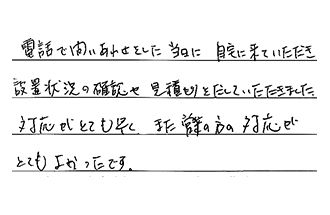 電話で問いあわせをした当日に 自宅に来ていただき
設置状況の確認や見積もりをだしていただきました
対応がとても早く、また営業の方の対応が
とてもよかったです。